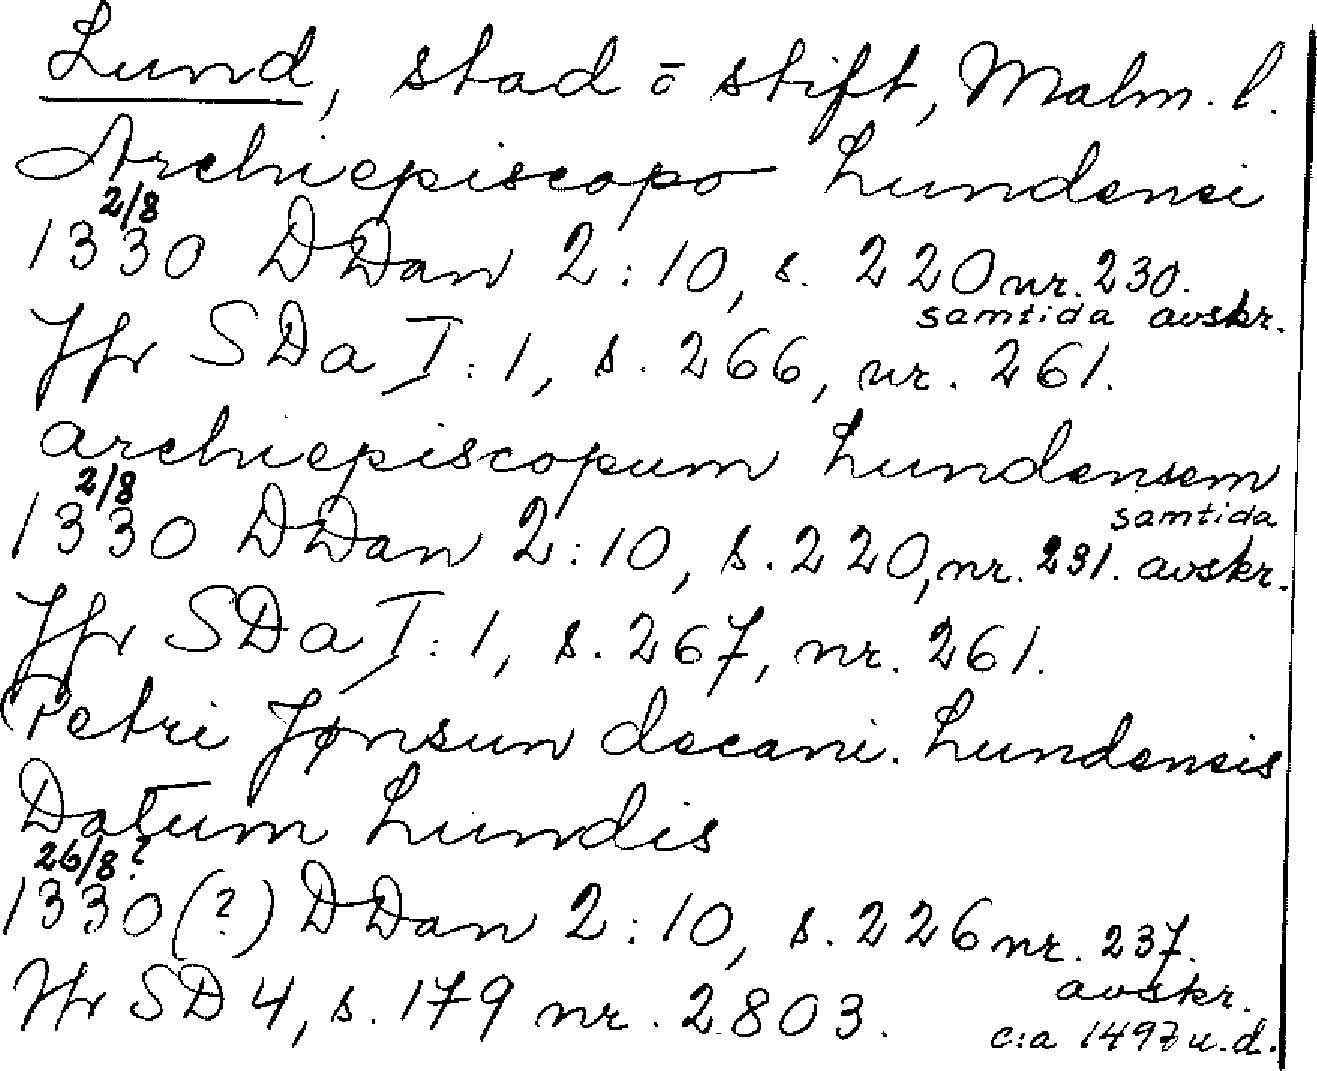 Lund, stad ō stift, Malm. l.
Archiepiscopo Lundensi
2/8
1330 DDan 2:10, s. 220 nr. 230.
samtida avskr.
Jfr SDa I:1, s. 266, nr. 261.
archiepiscopum Lundensem
2/8
samtida
1330 DDan 2:10, s. 220, nr. 231. avskr.
Jfr SDa I:1, s. 267, nr. 261.
Petri Jønsun decani. Lundensis
Datum Lundis
26/8?
1330(?) DDan 2:10, s. 226 nr. 237.
avskr.
Jfr SD 4, s. 179 nr. 2803.
c:a 1497 u.d.